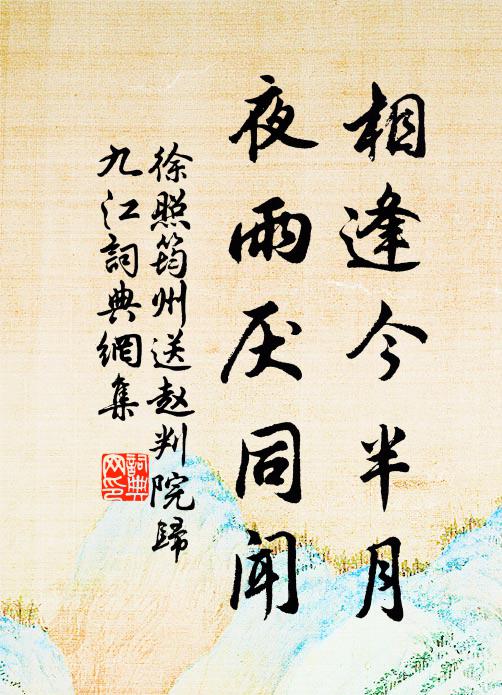 相逢今半月
夜雨厌同闻
徐照筠州送赵判院歸
九江詞典網集
詞典
网印